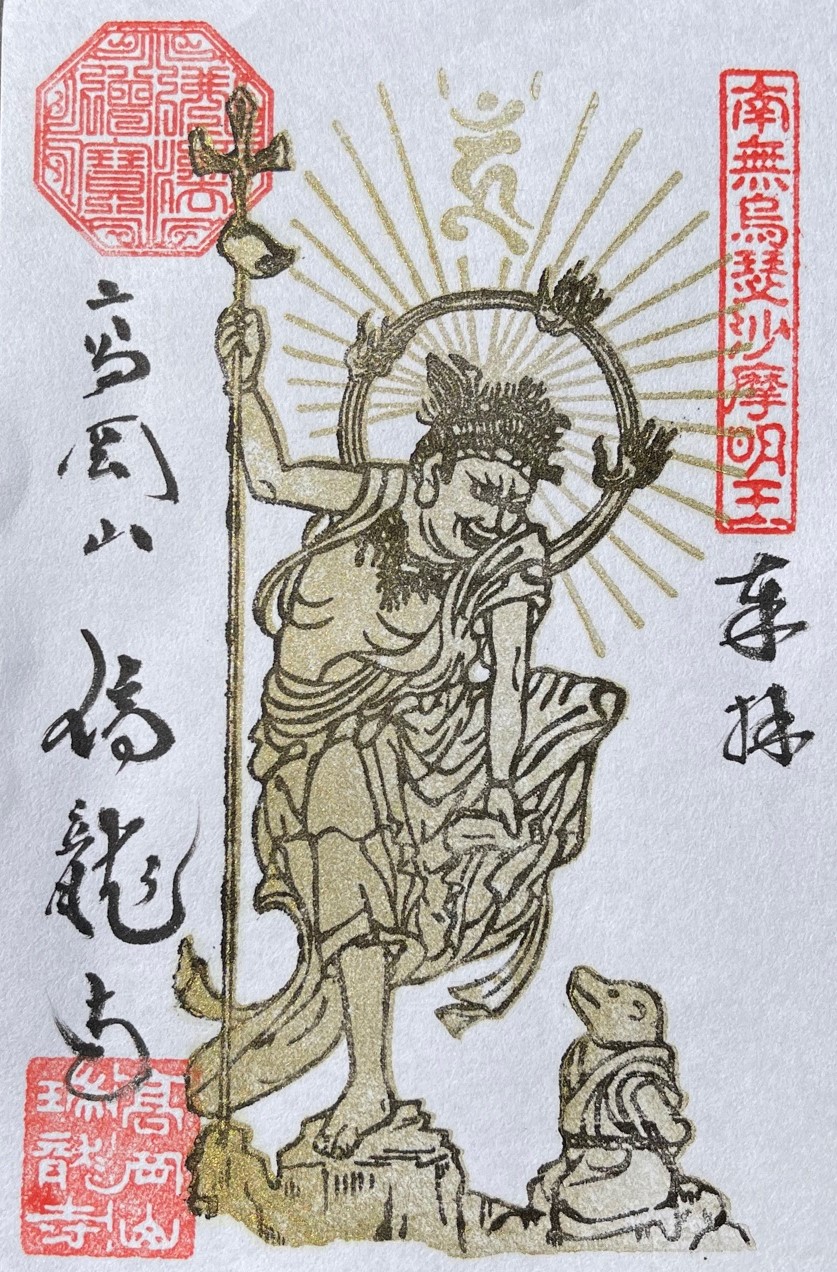 南無烏瑟沙摩明王
奉拝
高岡山 瑞龍寺
高岡山
瑞龍寺